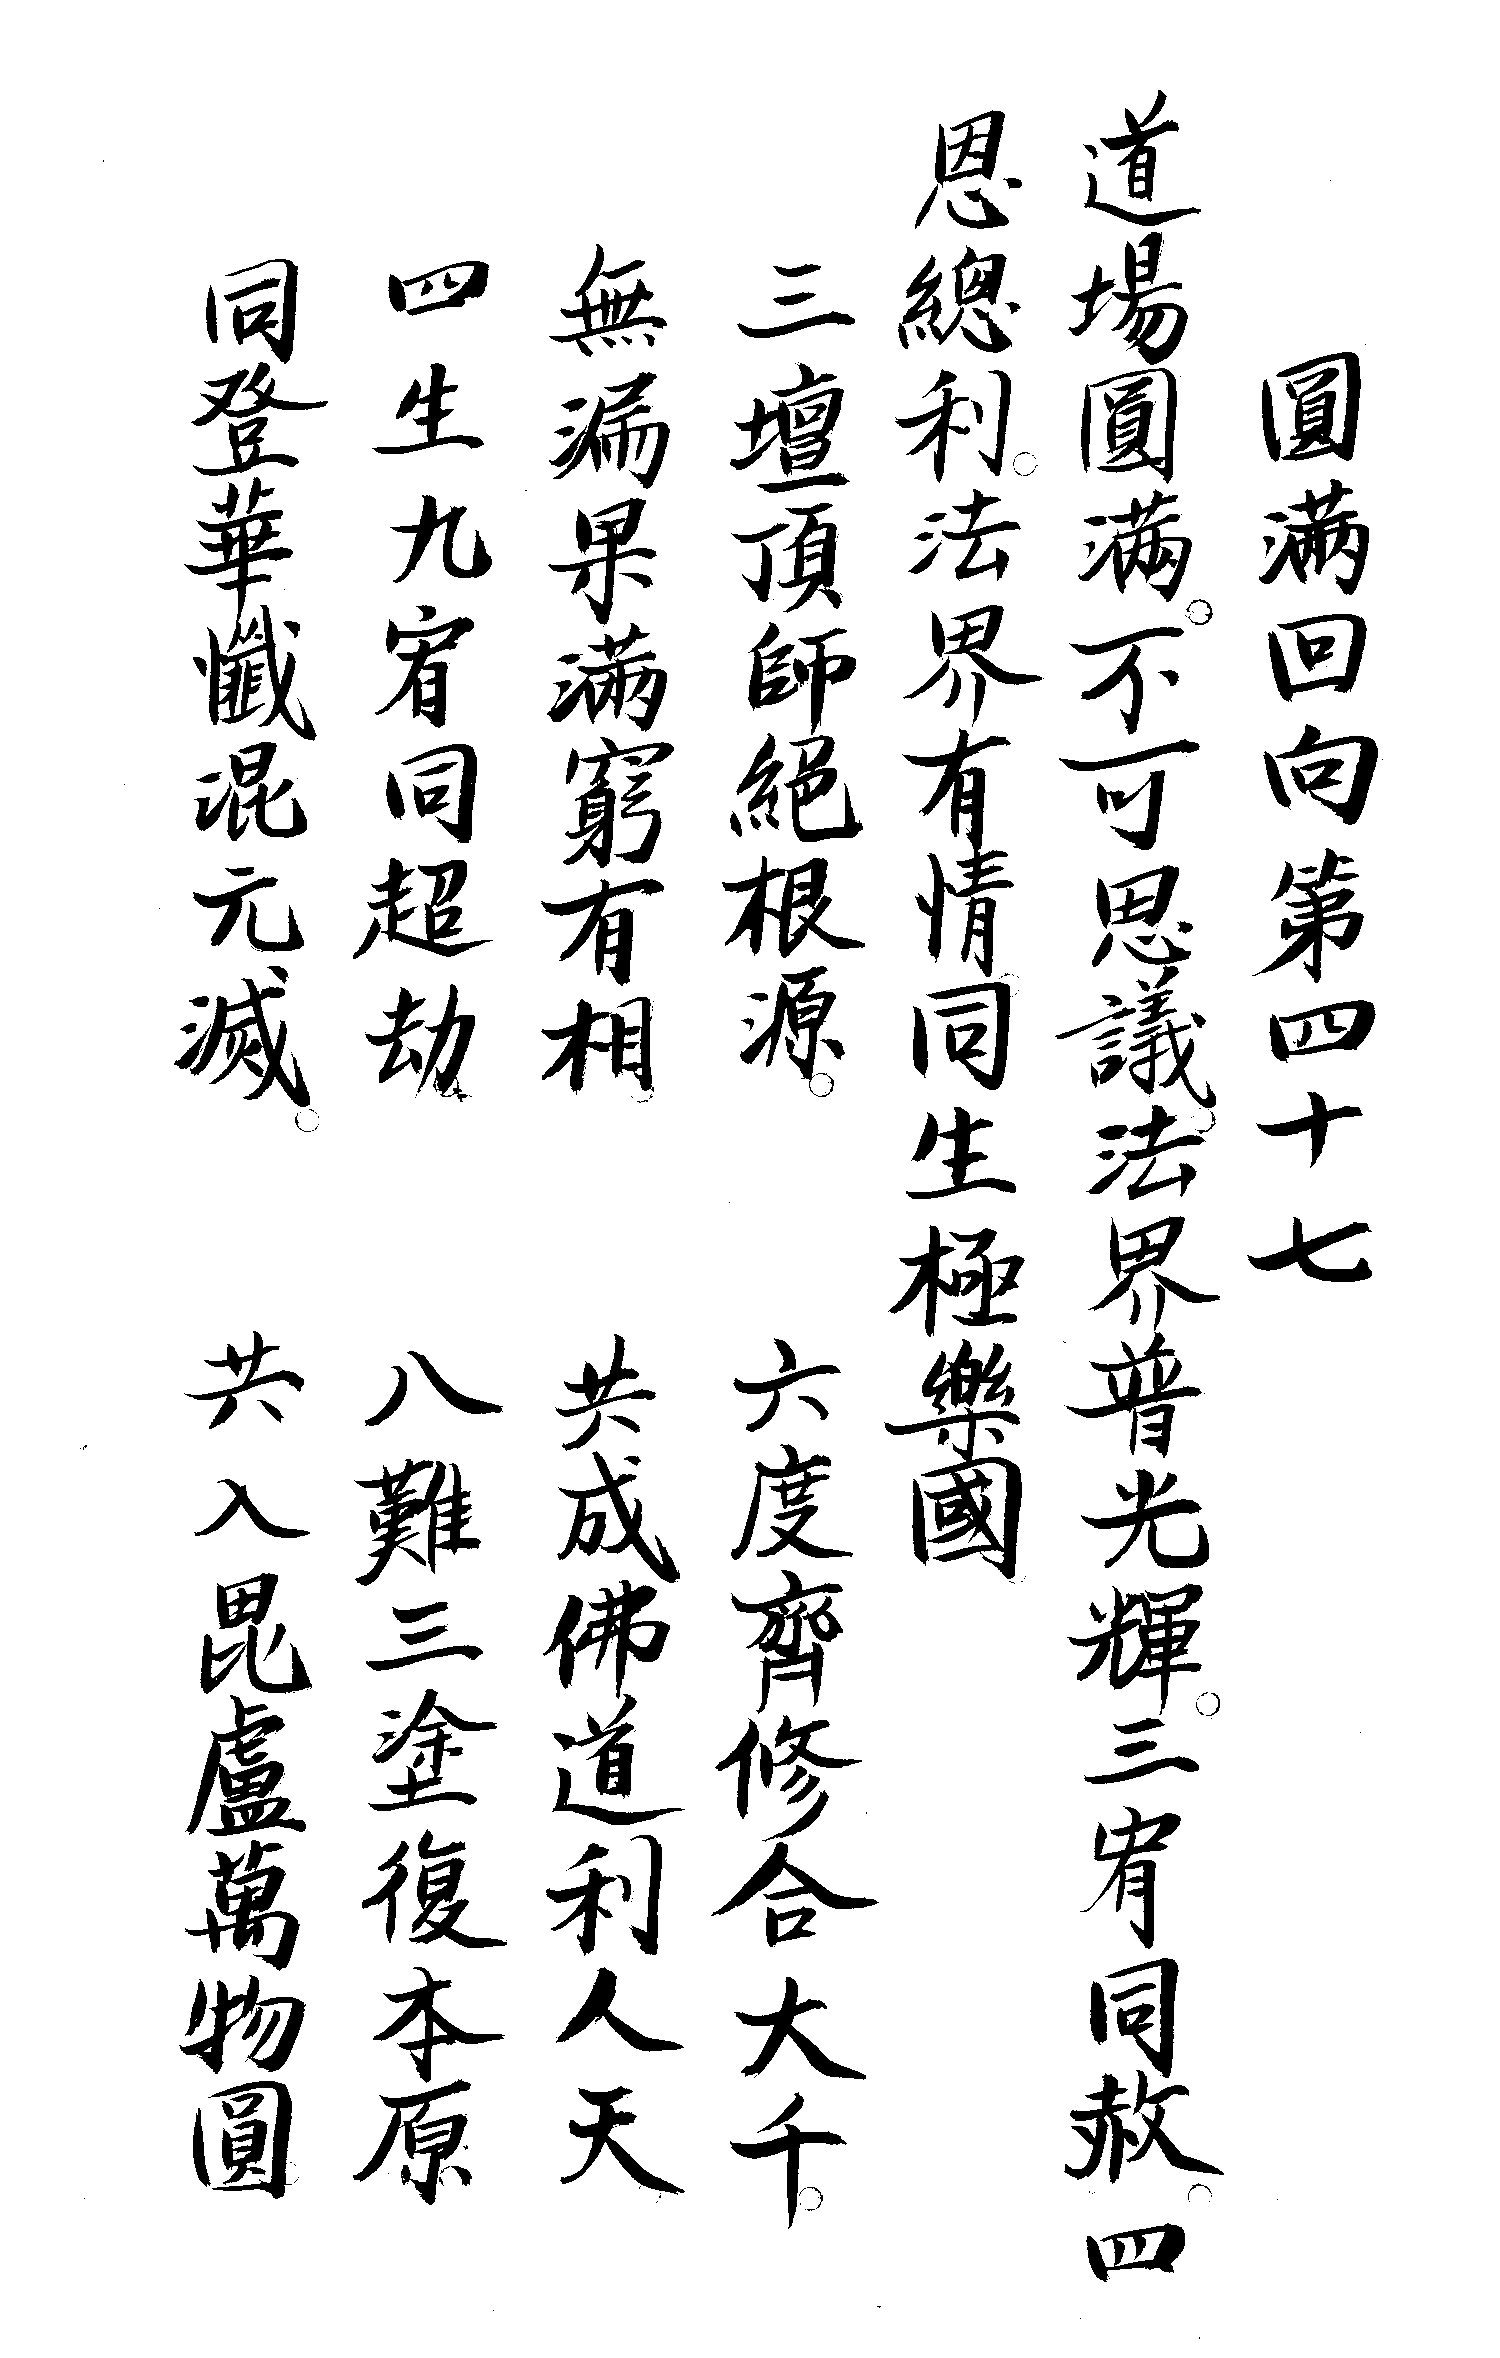 圓滿回向第四十七
道場圓滿。不可思議。法界普光輝。三宥同赦。四
恩總利。法界有情。同生極樂國。
三壇頂師絕根源。 六度齊修合大千。
無漏果滿窮有相。 共成佛道利人天。
四生九宥同超劫。 八難三塗復本原。
同登華懺混元滅。 共入毘盧萬物圓。